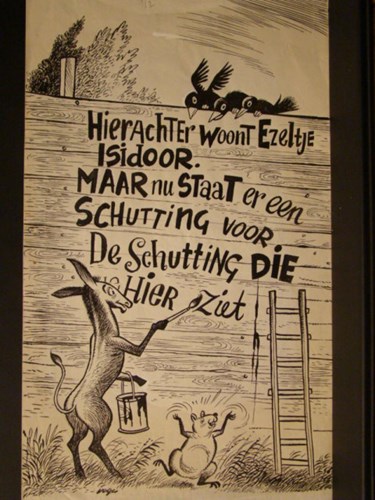 HIERACHTER WOONT EZELTJE
ISIDOOR.
MAAR nu STAAT er een
SCHUTTING VOOR
De Schutting DIE
HIER Ziet